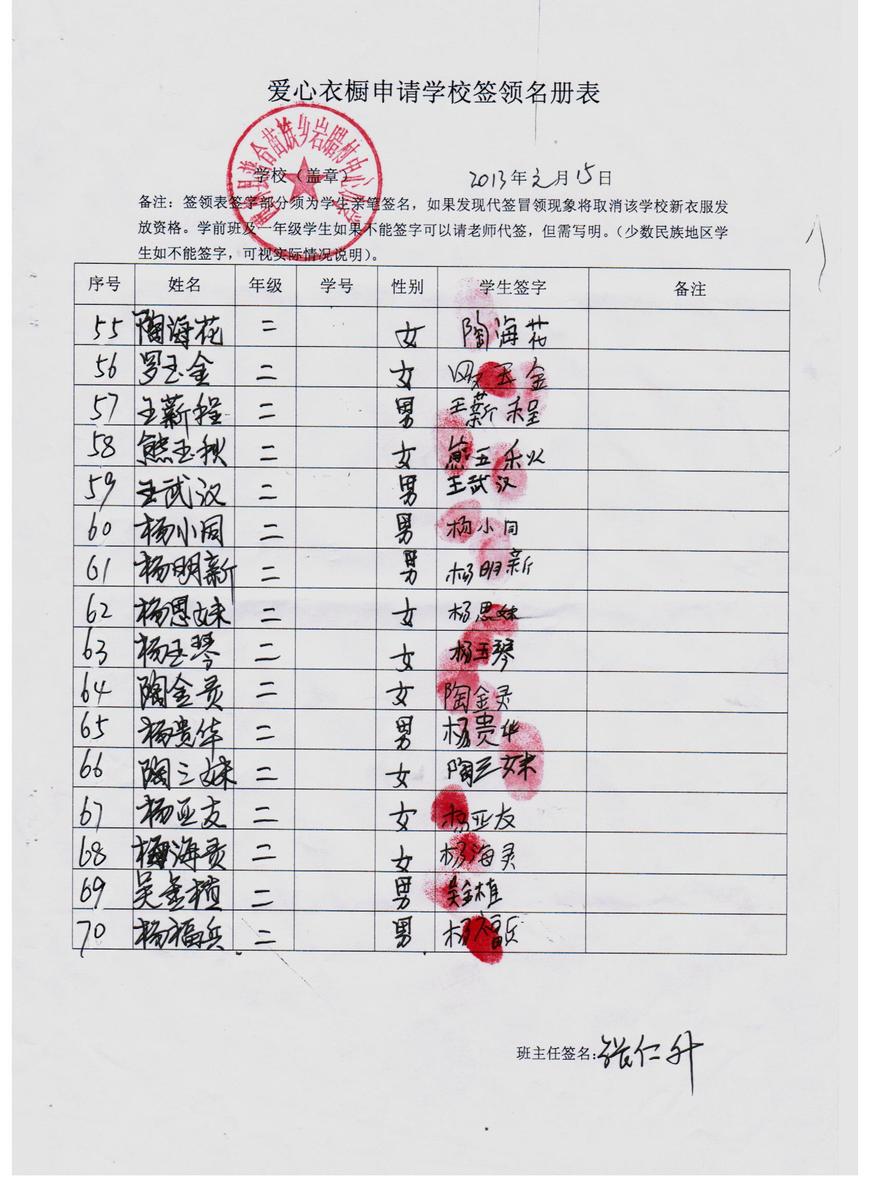 爱心衣橱申请学校签领名册表
苗族乡岩腊村中心
学校（盖章） 2013年元月15日
备注：签领表签字部分须为学生亲笔签名，如果发现代签冒领现象将取消该学校新衣服发
放资格。学前班及一年级学生如果不能签字可以请老师代签，但需写明。（少数民族地区学
生如不能签字，可视实际情况说明）。
序号 姓名 年级 学号 性别 学生签字 备注
55 陶海花 二 女 陶海花
56 罗玉金 二 女 罗玉金
57 王薪程 二 男 王薪程
58 熊玉秋 二 女 熊玉秋
59 王武汉 二 男 王武汉
60 杨小同 二 男 杨小同
61 杨明新 二 男 杨明新
62 杨思妹 二 女 杨思妹
63 杨玉琴 二 女 杨玉琴
64 陶金灵 二 女 陶金灵
65 杨贵华 二 男 杨贵华
66 陶三妹 二 女 陶三妹
67 杨亚友 二 女 杨亚友
68 杨海灵 二 女 杨海灵
69 吴金植 二 男 吴金植
70 杨福兵 二 男 杨福兵
班主任签名：张仁升